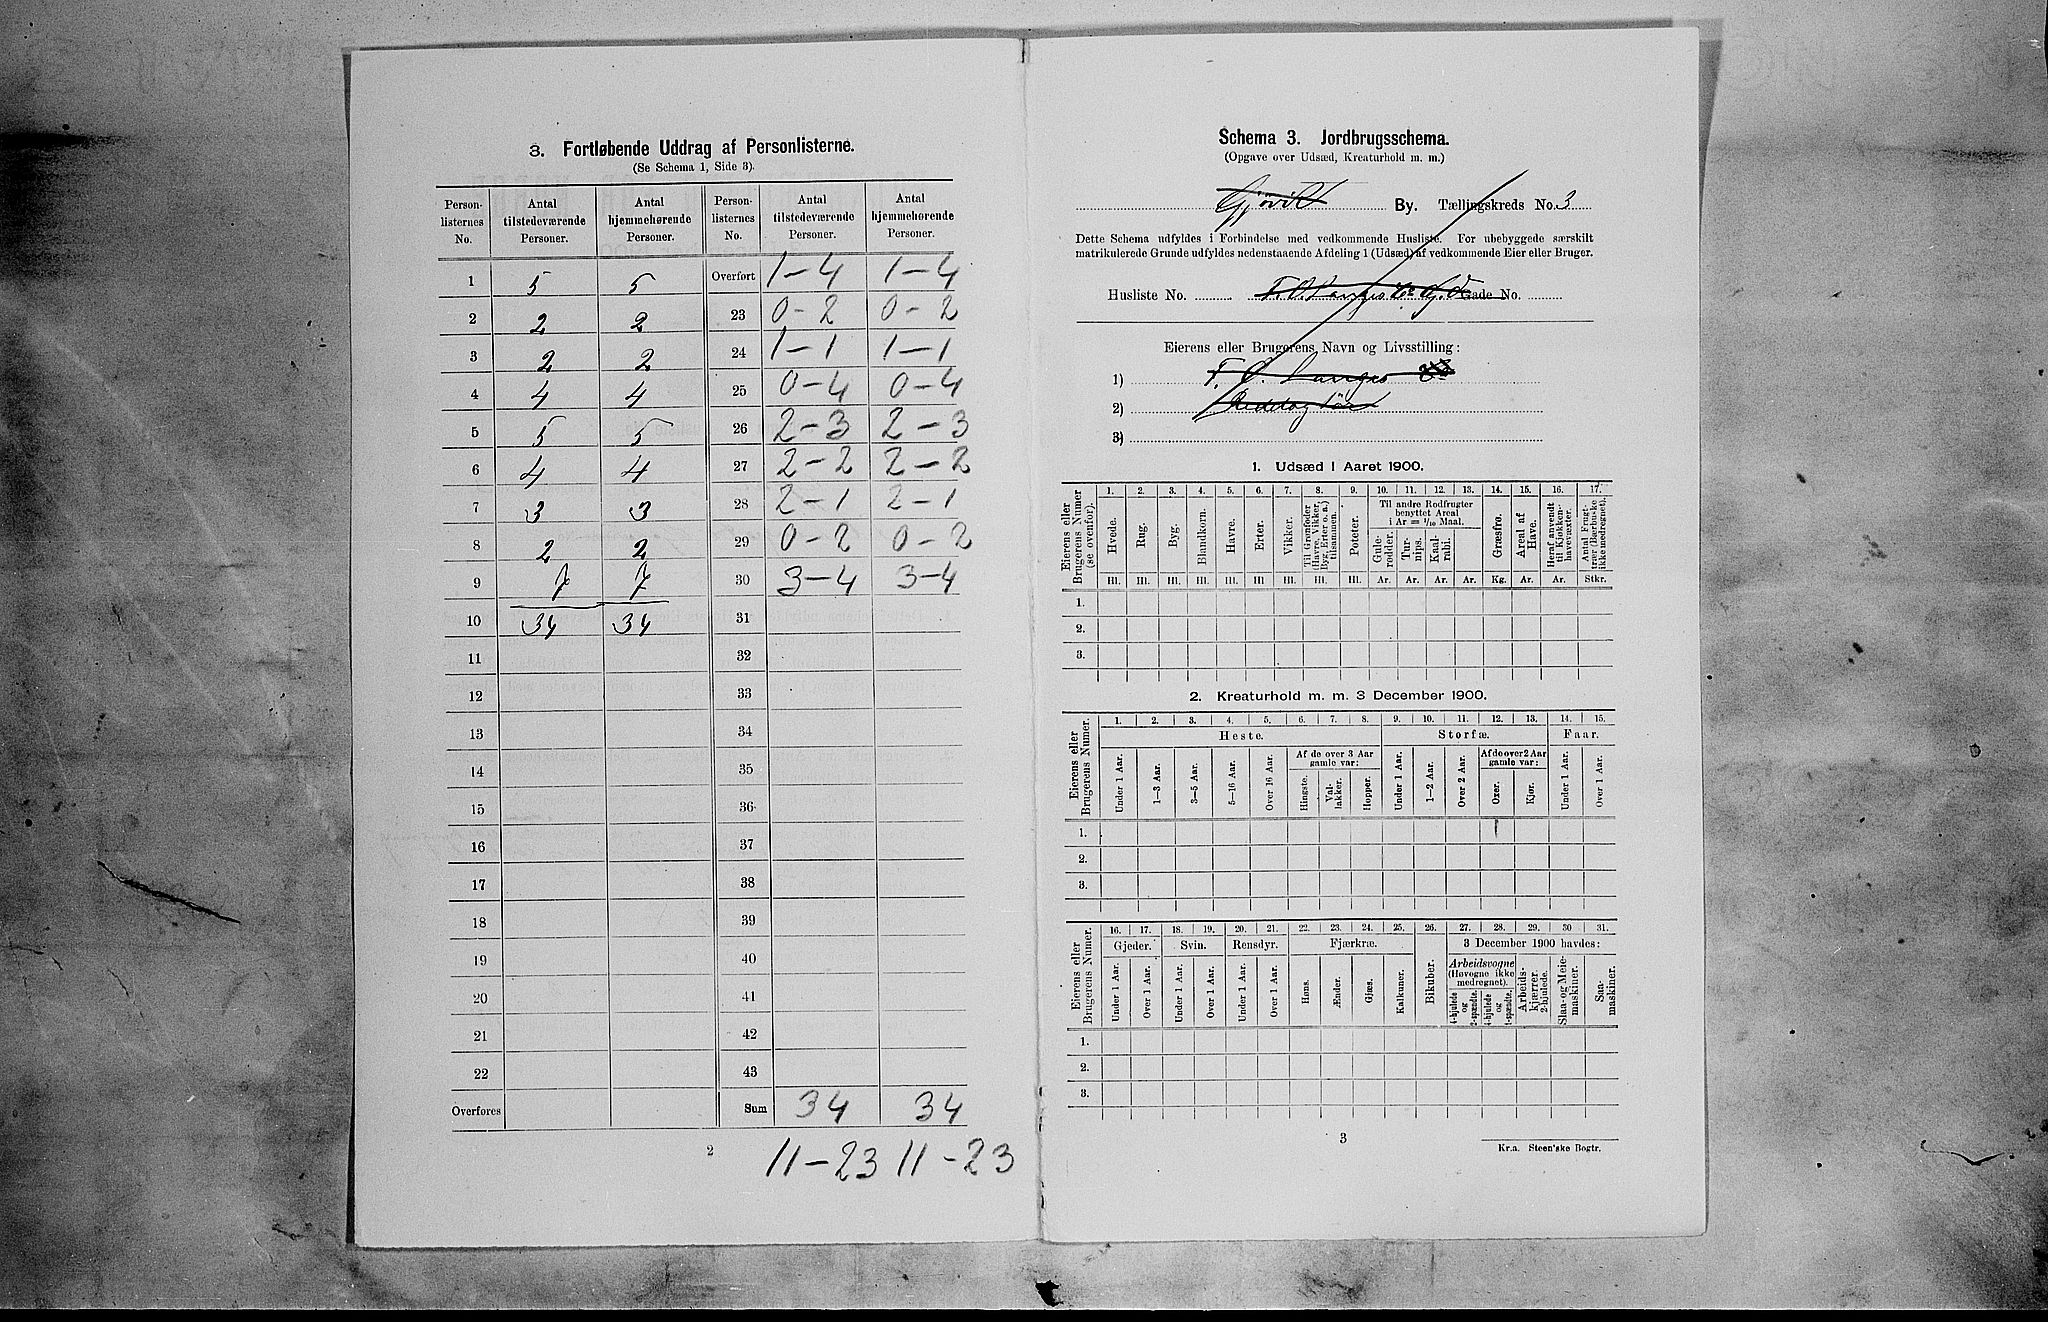 3. Fortløbende Uddrag af Personlisterne.
(Se Schema 1, Side 3).
Person-listernes No. | Antal tilstedeværende Personer. | Antal hjemmehørende Personer. | Person-listernes No. | Antal tilstedeværende Personer. | Antal hjemmehørende Personer.
1 | 5 | 5 | Overført | 1-4 | 1-4
2 | 2 | 2 | 23 | 0-2 | 0-2
3 | 2 | 2 | 24 | 1-1 | 1-1
4 | 4 | 4 | 25 | 0-4 | 0-4
5 | 5 | 5 | 26 | 2-3 | 2-3
6 | 4 | 4 | 27 | 2-2 | 2-2
7 | 3 | 3 | 28 | 2-1 | 2-1
8 | 2 | 2 | 29 | 0-2 | 0-2
9 | 7 | 7 | 30 | 3-4 | 3-4
10 | 34 | 34 | 31
11 | 32
12 | 33
13 | 34
14 | 35
15 | 36
16 | 37
17 | 38
18 | 39
19 | 40
20 | 41
21 | 42
22 | 43
Overføres | Sum | 34 | 34
2 11-23 11-23
Schema 3. Jordbrugsschema.
(Opgave over Udsæd, Kreaturhold m. m.)
Gjøvik By. Tællingskreds No. 3
Dette Schema udfyldes i Forbindelse med vedkommende Husliste. For ubebyggede særskilt
matrikulerede Grunde udfyldes nedenstaaende Afdeling 1 (Udsæd) af vedkommende Eier eller Bruger.
Husliste No. Gade No.
Eierens eller Brugerens Navn og Livsstilling:
1) F. O.
2)
3)
1. Udsæd i Aaret 1900.
Eierens eller Brugerens Numer (se ovenfor). | 1. | 2. | 3. | 4. | 5. | 6. | 7. | 8. | 9. | 10. | 11. | 12. | 13. | 14. | 15. | 16. | 17.
Hvede. | Rug. | Byg. | Blandkorn. | Havre. | Erter. | Vikker. | Til Grønfoder (Havre, Vikker, Byg, Erter o. a.) tilsammen. | Poteter. | Til andre Rodfrugter benyttet Areal i Ar = 1/10 Maal. | Gule-rødder. | Tur-nips. | Kaal-rabi. | Græsfrø. | Areal af Have. | Heraf anvendt til Kjøkken-havevæxter. | Antal Frugt-trær (Bærbuske ikke medregnet).
Hl. | Hl. | Hl. | Hl. | Hl. | Hl | Hl. | Hl. | Hl. | Ar. | Ar. | Ar. | Ar. | Kg. | Ar. | Ar. | Stkr.
1.
2.
3.
2. Kreaturhold m. m. 3 December 1900.
Eierens eller Brugerens Numer. | 1. | 2. | 3. | 4. | 5. | 6. | 7. | 8. | 9. | 10. | 11. | 12. | 13. | 14. | 15.
Heste. | Storfæ. | Faar.
Under 1 Aar. | 1—3 Aar. | 3—5 Aar. | 5—16 Aar. | Over 16 Aar. | Af de over 3 Aar gamle var: | Hingste. | Val-lakker. | Hopper. | Under 1 Aar. | 1—2 Aar. | Over 2 Aar. | Af de over 2 Aar gamle var: | Oxer. | Kjør. | Under 1 Aar. | Over 1 Aar.
1.
2.
3.
Eierens eller Brugerens Numer. | 16. | 17. | 18. | 19. | 20. | 21. | 22. | 23. | 24. | 25. | 26. | 27. | 28. | 29. | 30 | 31.
Gjeder. | Svin. | Rensdyr. | Fjærkræ. | Bikuber. | 3 December 1900 havdes:
Under 1 Aar. | Over 1 Aar. | Under 1 Aar. | Over 1 Aar. | Under 1 Aar. | Over 1 Aar. | Høns. | Ænder. | Gjæs. | Kalkuner. | Arbeidsvogne (Høvogne ikke medregnet). | 4-hjulede og 2-spændte. | 4-hjulede og 1-spændte. | Arbeids-kjærrer 2-hjulede. | Slaa- og Meie-maskiner. | Saa-maskiner.
1.
2.
3.
3
Kr.a. Steen'ske Bogtr.